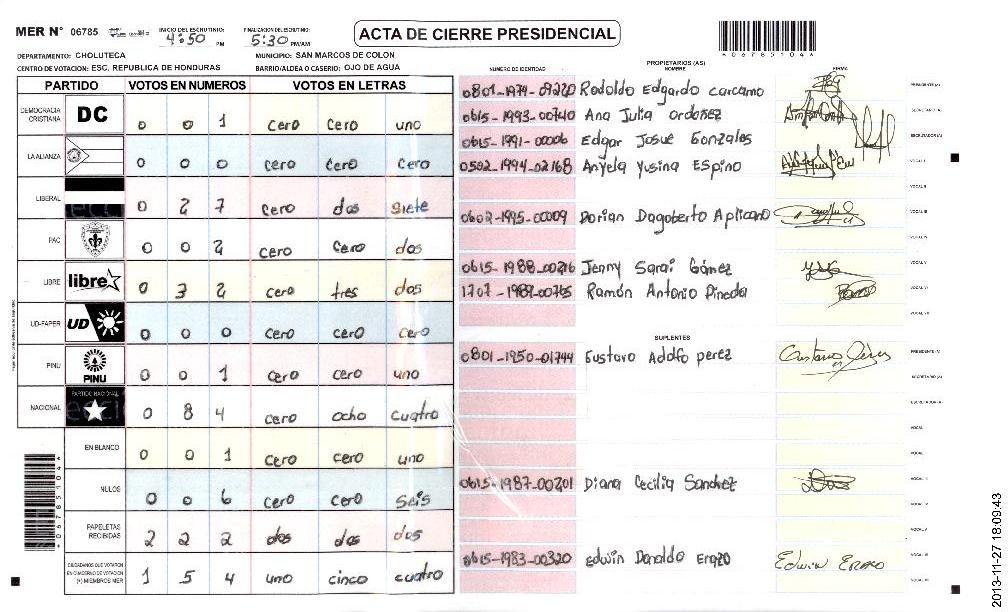 MER N° 06785 INICIO DEL ESCRUTINIO: 4:50 PM FINALIZACION DEL ESCRUTINIO: 5:30 PM/AM ACTA DE CIERRE PRESIDENCIAL
DEPARTAMENTO: CHOLUTECA MUNICIPIO: SAN MARCOS DE COLON
CENTRO DE VOTACION: ESC. REPUBLICA DE HONDURAS BARRIO/ALDEA O CASERIO: OJO DE AGUA
PARTIDO VOTOS EN NUMEROS VOTOS EN LETRAS
DEMOCRACIA CRISTIANA DC 0 0 1 cero cero uno
LA ALIANZA 0 0 0 cero cero cero
LIBERAL 0 2 7 cero dos siete
PAC 0 0 2 cero cero dos
LIBRE libre 0 3 2 cero tres dos
UD-FAPER UD 0 0 0 cero cero cero
PINU PINU 0 0 1 cero cero uno
NACIONAL PARTIDO NACIONAL 0 8 4 cero ocho cuatro
EN BLANCO 0 0 1 cero cero uno
NULOS 0 0 6 cero cero seis
PAPELETAS RECIBIDAS 2 2 2 dos dos dos
CIUDADANOS QUE VOTARON EN CUADERNO DE VOTACION (+) MIEMBROS MER 1 5 4 uno cinco cuatro
06785104
PROPIETARIOS (AS)
NUMERO DE IDENTIDAD NOMBRE FIRMA
0801-1974-09220 Rodolfo Edgardo Carcamo PRESIDENTE (A)
0615-1993-00740 Ana Julia Ordoñez SECRETARIO (A)
0615-1991-00006 Edgar Josue Gonzales ESCRUTADOR (A)
0502-1994-02168 Anyela Yusina Espino VOCAL I
VOCAL II
0602-1995-00009 Dorian Dagoberto Aplicano VOCAL III
VOCAL IV
0615-1988-00216 Jenny Sarai Gómez VOCAL V
1707-1987-00765 Ramón Antonio Pineda VOCAL VI
VOCAL VII
SUPLENTES
0801-1950-01744 Gustavo Adolfo perez PRESIDENTE (A)
SECRETARIO (A)
ESCRUTADOR (A)
VOCAL
VOCAL
0615-1987-00201 Diana Cecilia Sanchez
0615-1983-00320 Edwin Donaldo Erazo Edwin Erazo
2013-11-27 18:09:43